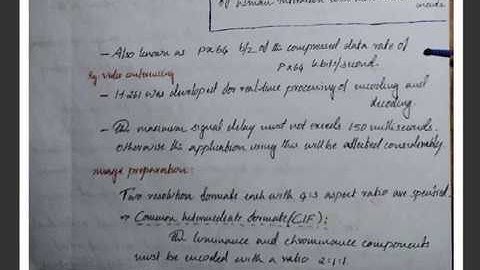 of human
- Also known as Px64 b/z of the compressed data rate of
Px64 kbits/second.
Eg: video conferencing
- H.261 was developed for real-time processing of encoding and
decoding.
- The maximum signal delay must not exceed 150 milliseconds,
otherwise the application using this will be affected considerably.
Image preparation:
Two resolution formats each with 4:3 aspect ratio are specified.
Common Intermediate format (CIF):
The luminance and chrominance components
must be encoded with a ratio 2:1:1.